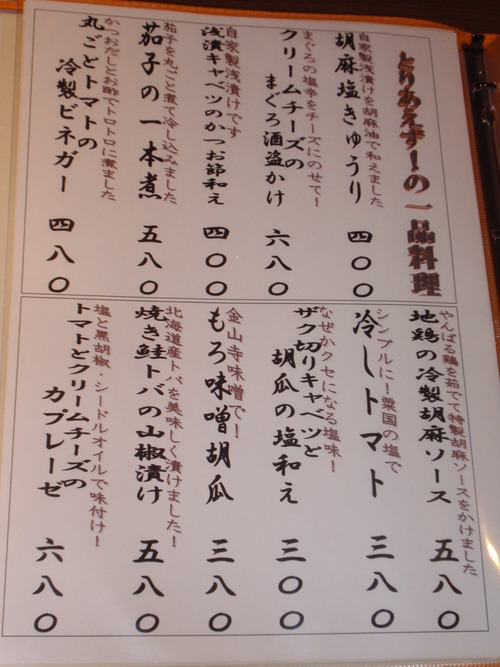 とりあえず！の一品料理
自家製浅漬けを胡麻油で和えました
胡麻塩きゅうり
四〇〇
まぐろの塩辛をチーズにのせて！
クリームチーズの
まぐろ酒盗かけ
六八〇
自家製浅漬けです
浅漬キャベツのかつお節和え
四〇〇
茄子を丸ごと煮て冷し込みました
茄子の一本煮
五八〇
かつおだしとお酢でトロトロに煮ました
丸ごとトマトの
冷製ビネガー
四八〇
やんばる鶏を茹でて特製胡麻ソースをかけました
地鶏の冷製胡麻ソース
五八〇
シンプルに！粟国の塩で
冷しトマト
三八〇
なぜかクセになる塩味！
ザク切りキャベツと
胡瓜の塩和え
三〇〇
金山寺味噌で！
もろ味噌胡瓜
三八〇
北海道産トバを美味しく漬けました！
焼き鮭トバの山椒漬け
五八〇
塩と黒胡椒・シードルオイルで味付け！
トマトとクリームチーズの
カプレーゼ
六八〇